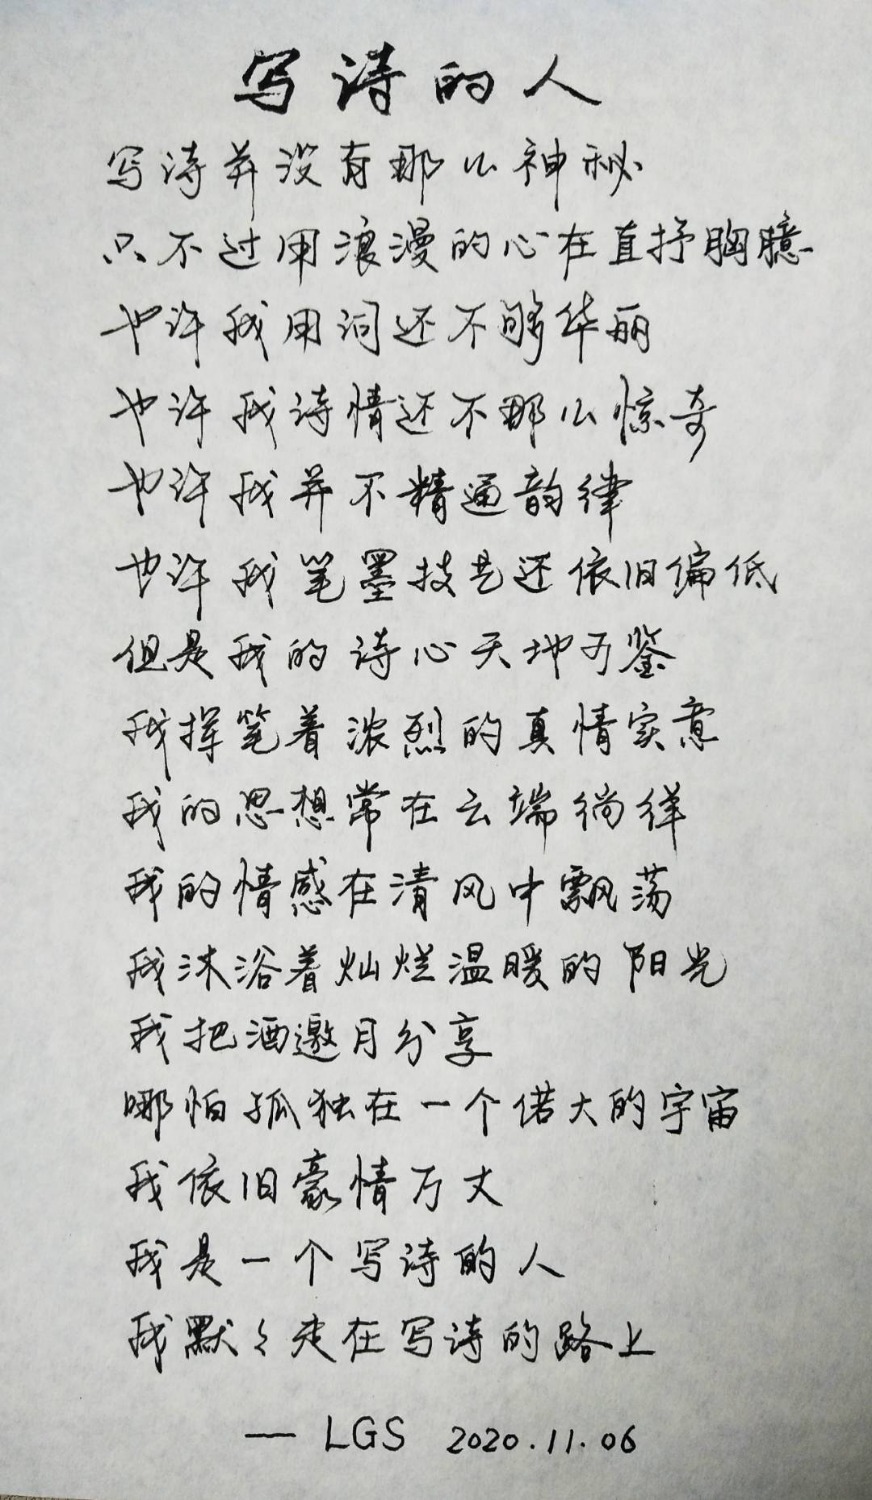 写诗的人
写诗并没有那么神秘
只不过用浪漫的心在直抒胸臆
也许我用词还不够华丽
也许我诗情还不那么惊奇
也许我并不精通韵律
也许我笔墨技艺还依旧偏低
但是我的诗心天地可鉴
我挥笔着浓烈的真情实意
我的思想常在云端徜徉
我的情感在清风中飘荡
我沐浴着灿烂温暖的阳光
我把酒邀月分享
哪怕孤独在一个偌大的宇宙
我依旧豪情万丈
我是一个写诗的人
我默々走在写诗的路上
— LGS 2020.11.06